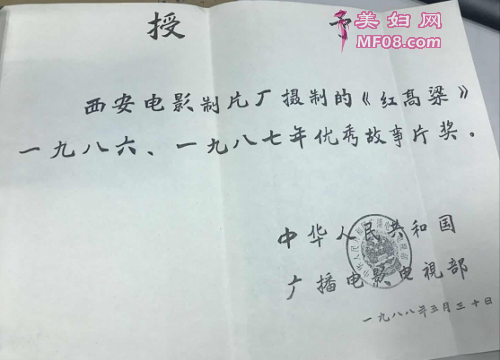 授 予
美妇网
MF08.com
西安电影制片厂摄制的《红高粱》
一九八六、一九八七年优秀故事片奖。
中华人民共和国
广播电影电视部
一九八八年三月三十日